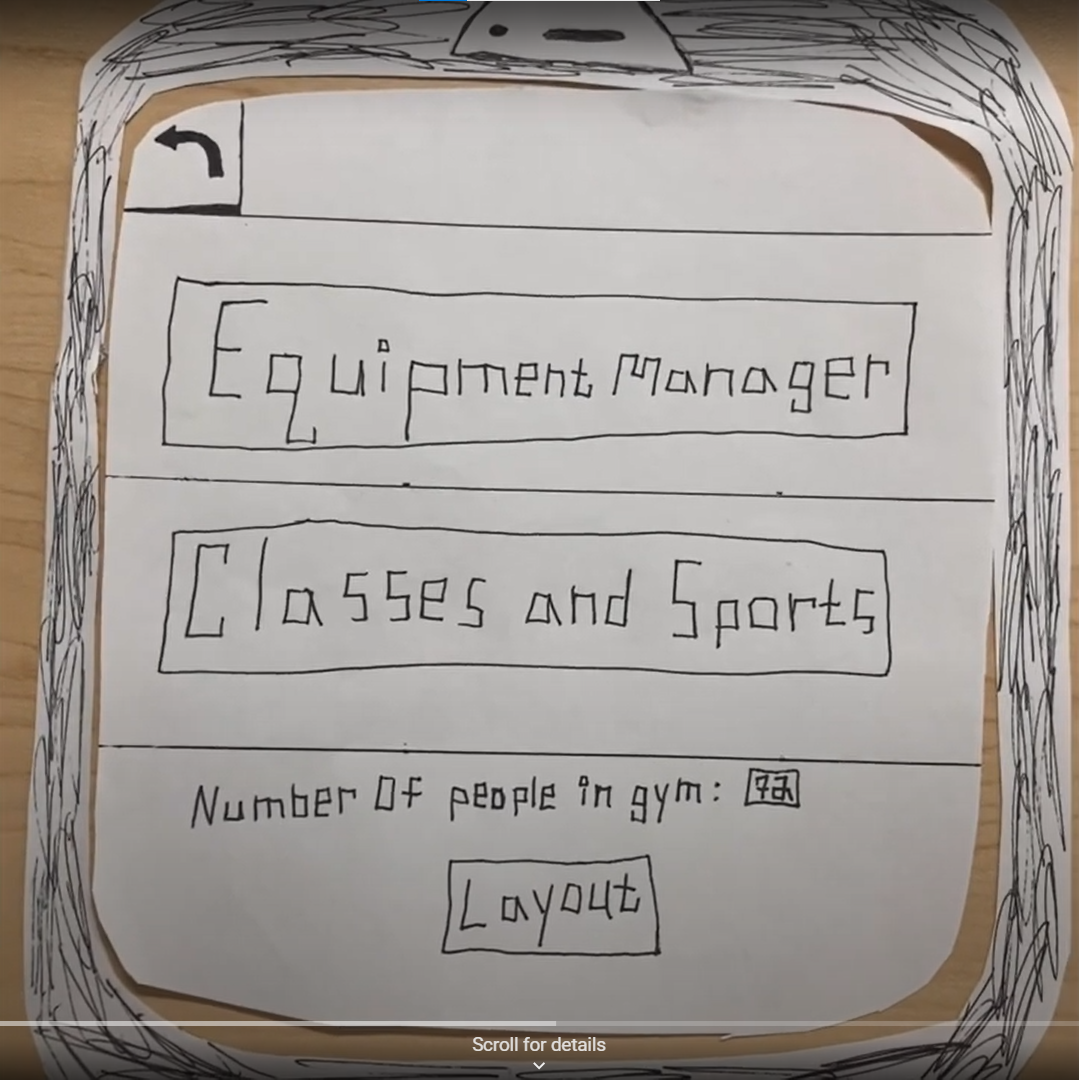 Equipment Manager
Classes and Sports
Number Of people in gym:
Layout
Scroll for details